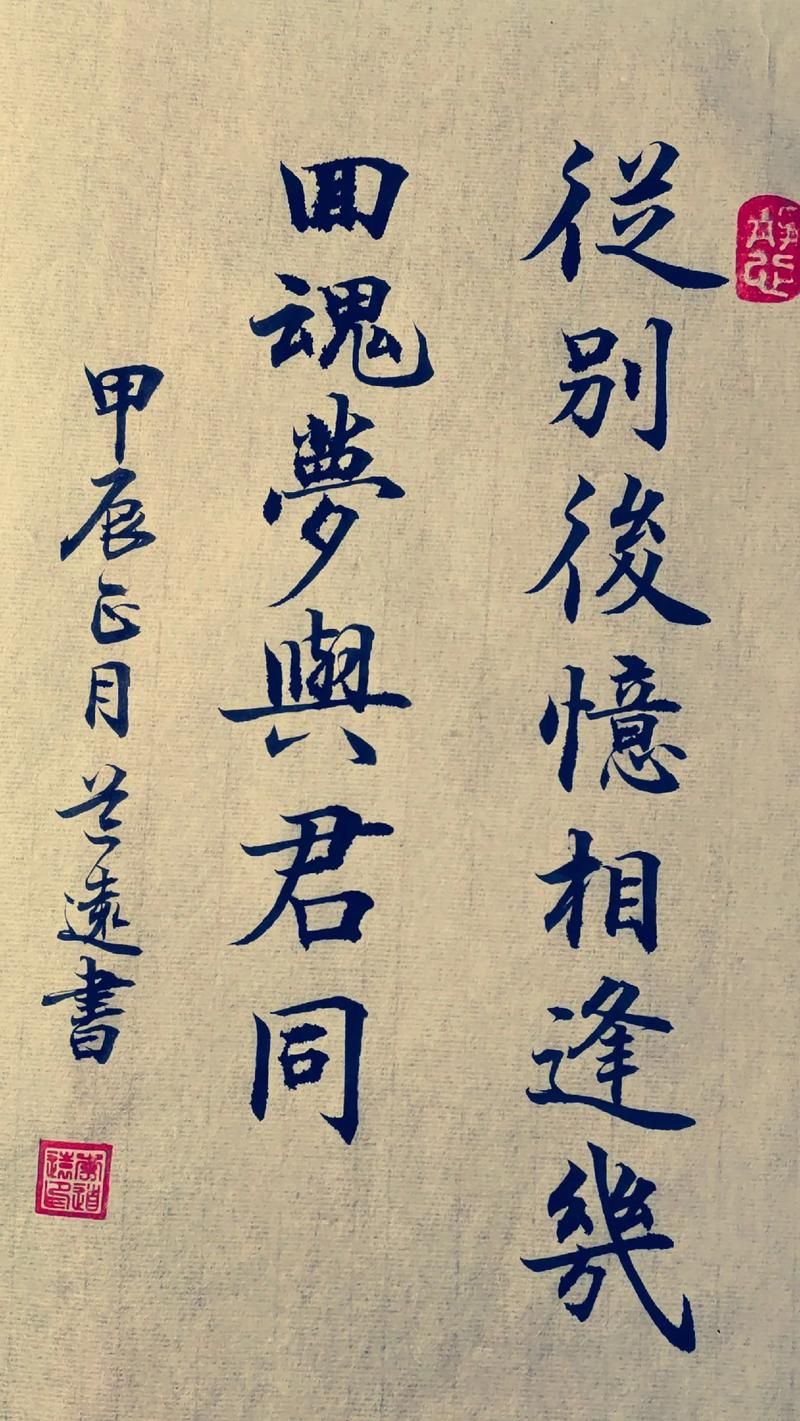 従別後憶相逢幾
囬魂夢與君同
甲辰正月道遠書